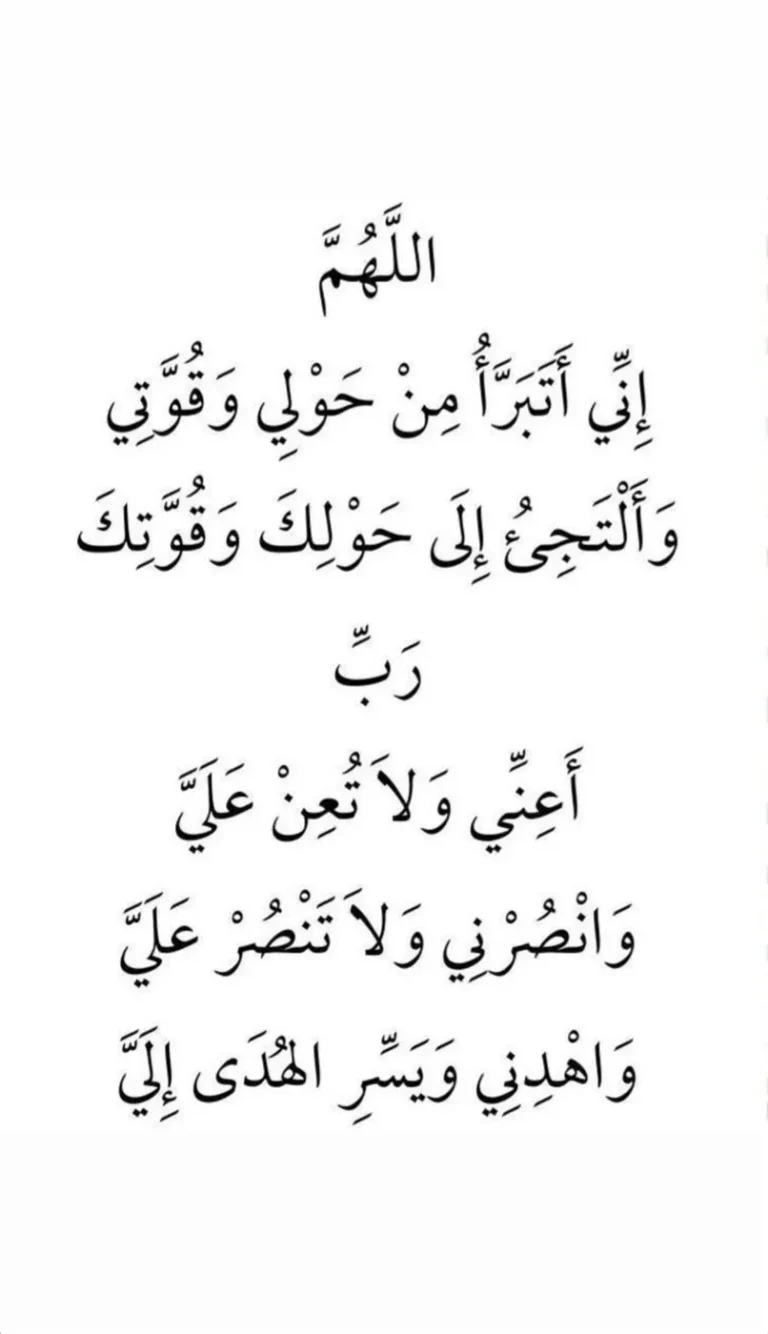 اللَّهُمَّ
إِنِّي أَتَبَرَّأُ مِنْ حَوْلِي وَقُوَّتِي
وَأَلْتَجِئُ إِلَى حَوْلِكَ وَقُوَّتِكَ
رَبِّ
أَعِنِّي وَلاَ تُعِنْ عَلَيَّ
وَانْصُرْنِي وَلاَ تَنْصُرْ عَلَيَّ
وَاهْدِنِي وَيَسِّرِ الهُدَى إِلَيَّ